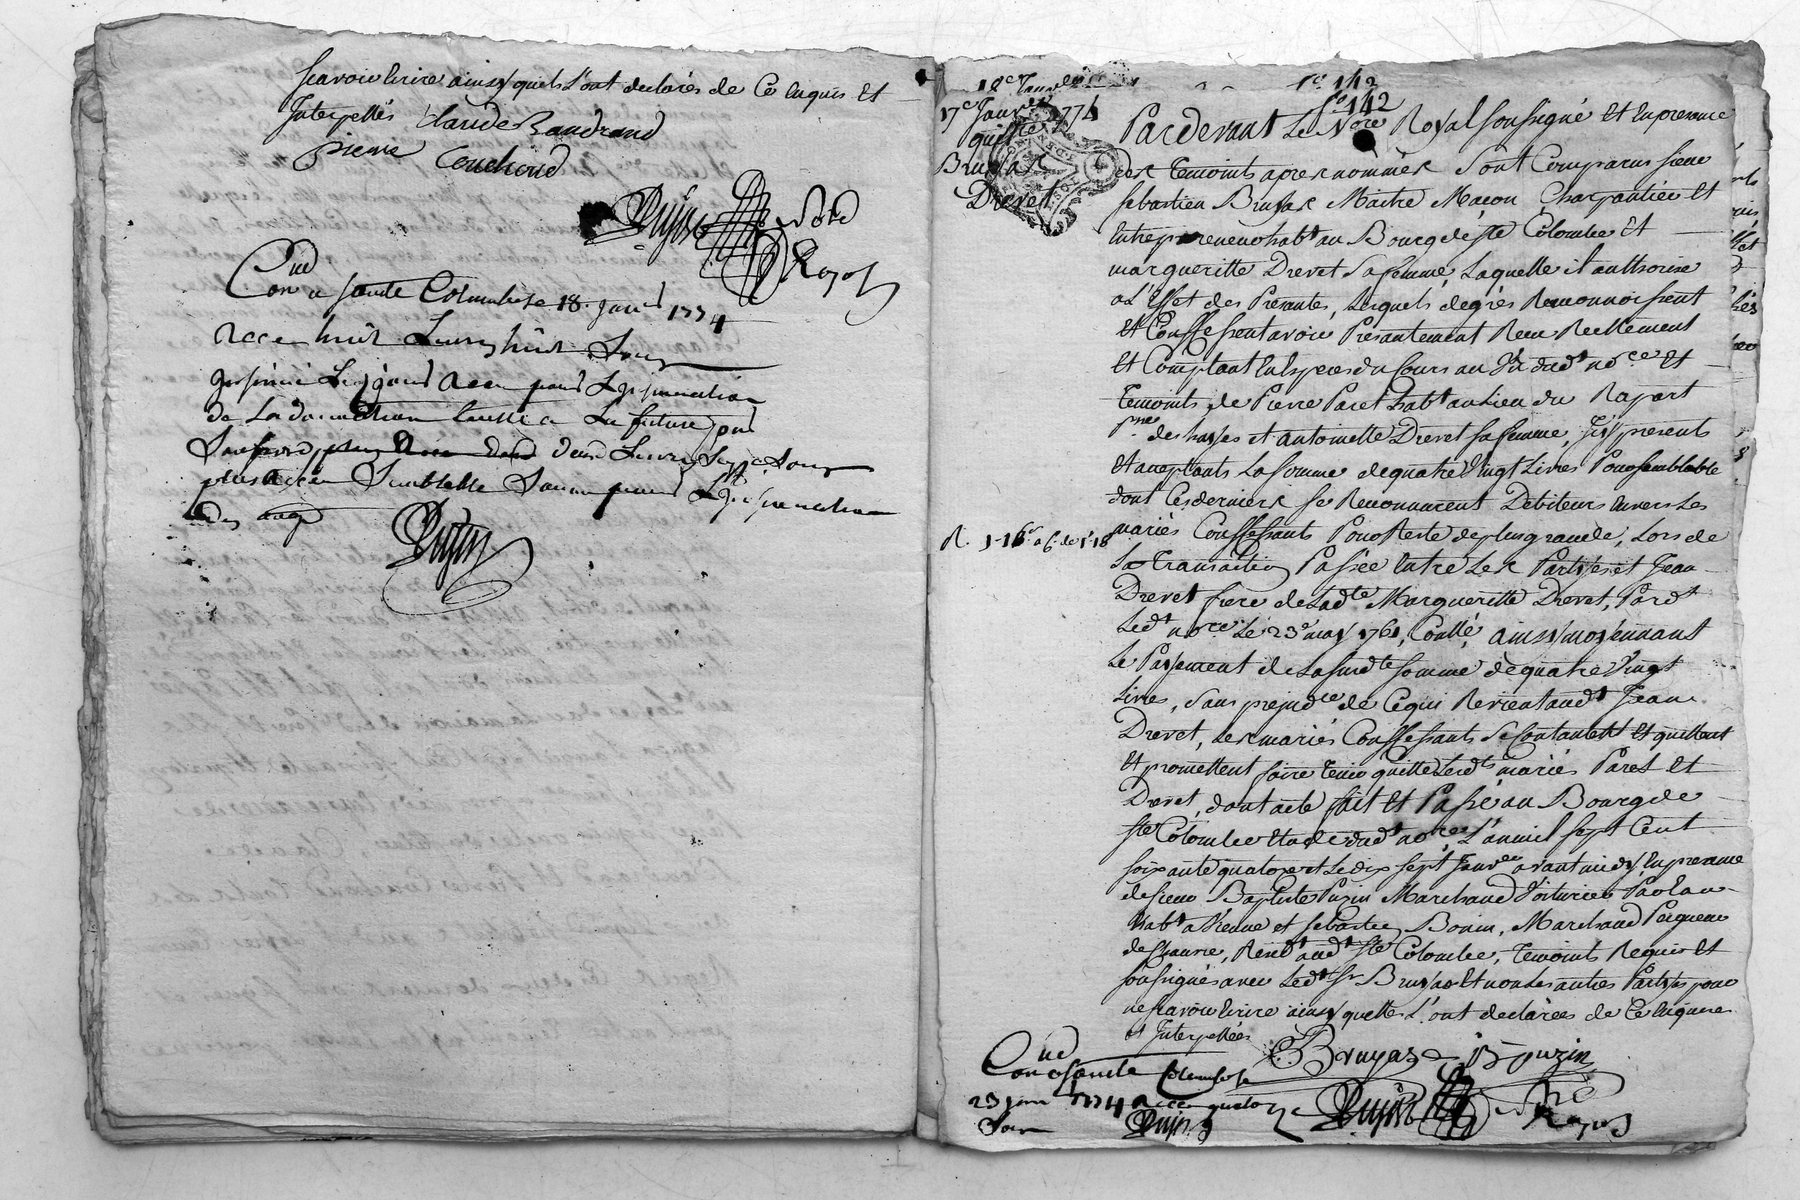 scavoir ecrire ainsy quels l'ont declarés de ce enquis et
Interpellés Claude Baudrand
pierre Couchoud
Dujin Note
Royol
Con a sainte Colombe le 18. janv 1774
Recu huit Livres huit Sous
de La donnation faitte a La future pour
Dujin
18e Janvier
17e Janvr 1774
quitte
Bruyas
Drevet
fo 142
fo 142
Pardevant Le Nore Royal soussigné et en presence
des temoints apres nommés sont comparus sieur
sebastien Bruyas Maitre Macon Charpantier et
Entrepreneur habt au Bourg de ste Colombe et
margueritte Drevet sa femme, Laquelle il authorise
a L'effet des Presantes, Lesquels de grés Reconnoissent
et Confessent avoir Presantement Recu Reellement
et Comptant en especes du cours au Vû dudt nore et
temoints de Pierre Paret habt au Lieu du Rapart
psse des hayes et antoinette Drevet sa femme, Icy presents
et acceptants La somme de quatre Vingt Livres Pour semblable
dont Ces derniers se Reconnurent Debiteurs envers Les
mariés Confessants Pour Reste de plus grande, Lors de
La transaction Passée entre Les Partyes et Jean
Drevet frere de Ladte Margueritte Drevet, Pardt
Ledt nore Le 23e may 1761, Conllé, ainsy moyennant
Le Payement de La susdte somme de quatre Vingt
Livres, sans prejudce de Ce qui Revient audt Jean
Drevet, Les mariés Confessants se Contantent et quittent
et promettent faire tenir quitte Lesdts mariés Paret et
Drevet, dont acte fait et Passé au Bourg de
ste Colombe etude dudt nore, L'an mil sept Cent
soixante quatorze et Le dix sept Janver avant midy, en presence
de sieur Baptiste Puzin Marchand Voiturier Par Eau
habt a Vienne et sebastien Bonin, Marchand Peigneur
de chanvre, Residt audt Ste Colombe, temoints Requis et
soussignés avec Ledt sr Bruyas et non Les autres Partyes pour
ne scavoir ecrire ainsy quelles L'ont declarées de Ce enquises
et Interpellées
SBruyas B puzin
Con a sainte Colombe le
23 janv 1774 Recu quatorze
Sous Dujin Dujin Nre
Royol